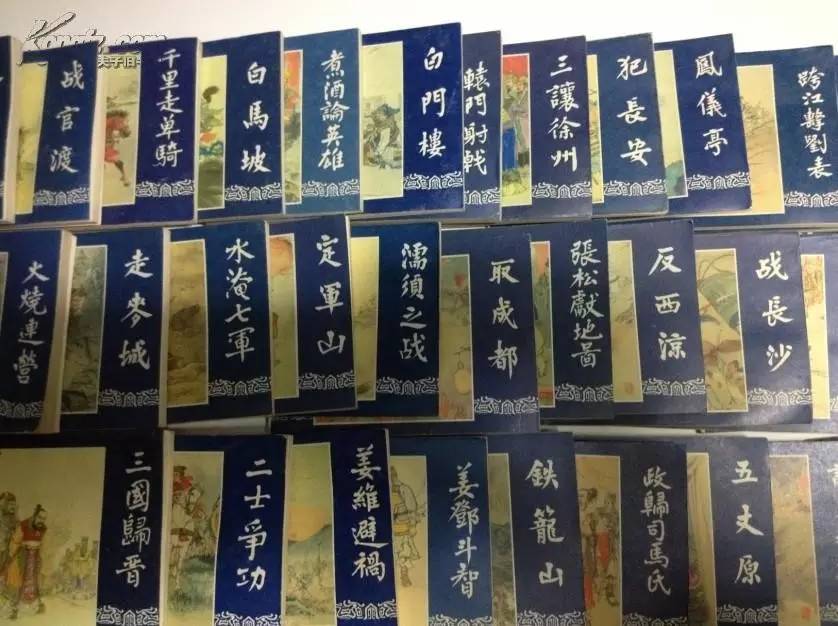 战官渡
千里走单騎
白馬坡
煮酒論英雄
白門樓
轅門射戟
三讓徐州
犯長安
鳳儀亭
跨江擊劉表
火燒連營
走麥城
水淹七軍
定軍山
濡須之战
取成都
張松獻地圖
反西涼
战長沙
三國歸晉
二士爭功
姜維避禍
姜鄧斗智
鉄籠山
政歸司馬氏
五丈原